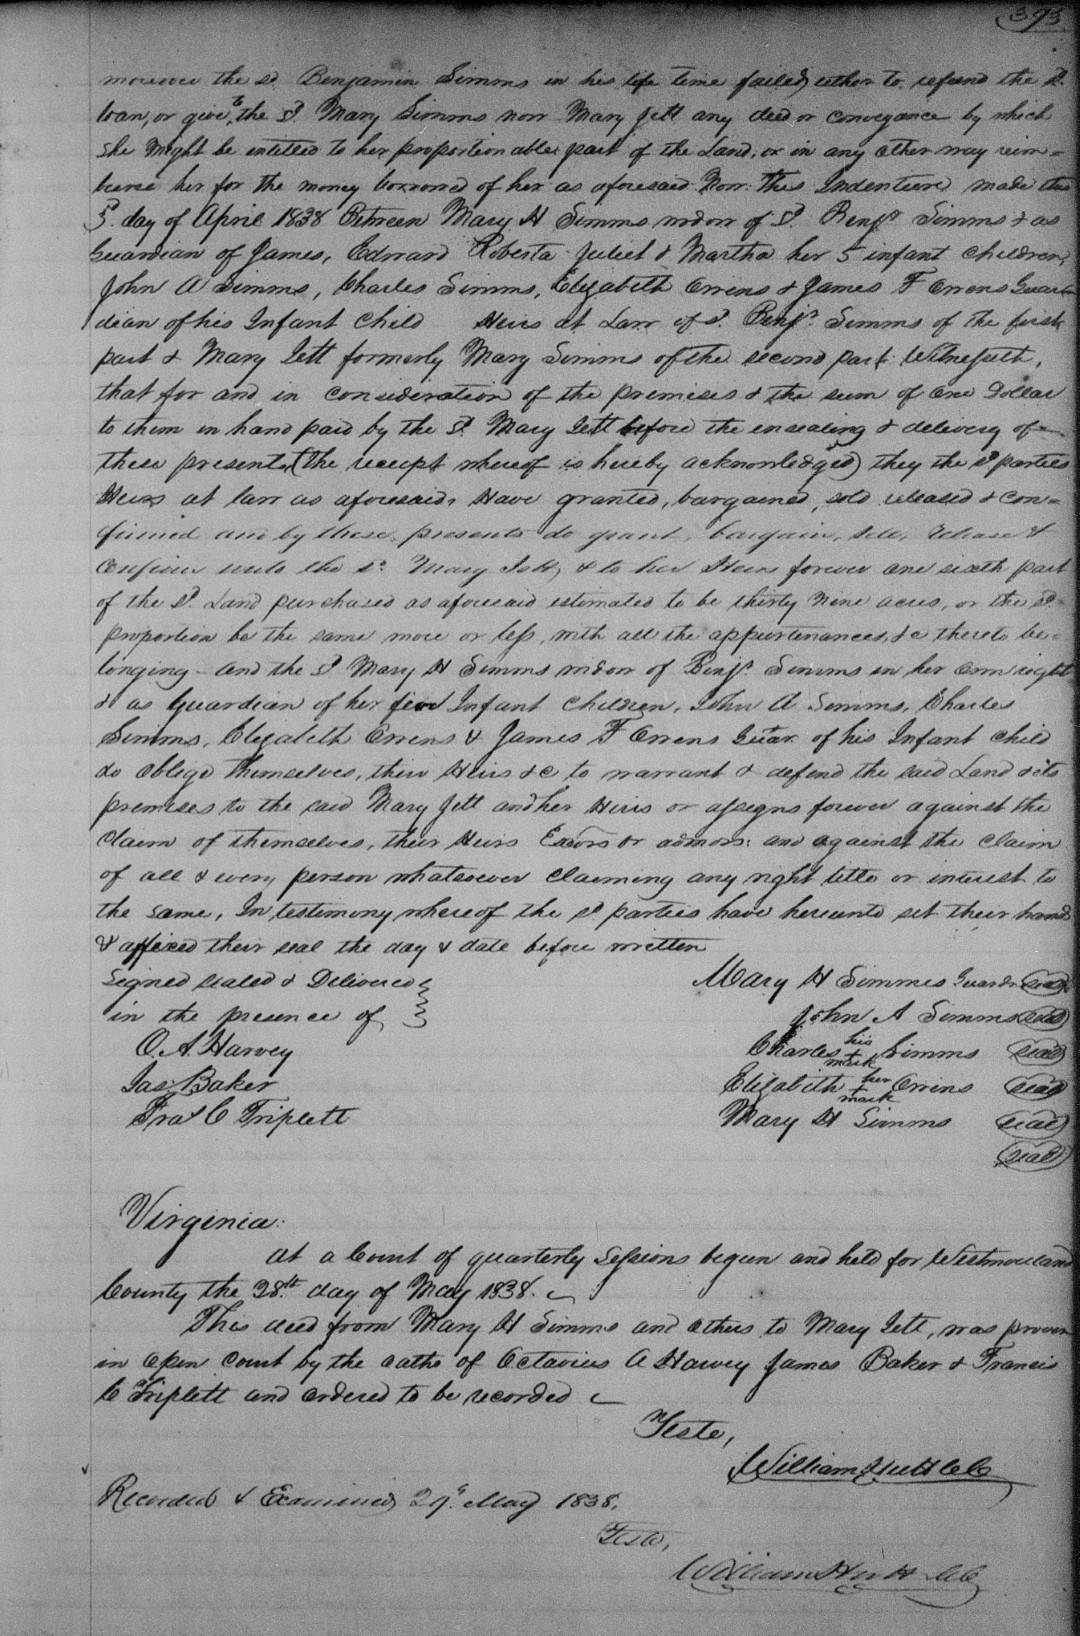 393
moreover the sd. Benjamin Simms in his life time failed either to refund the sd.
loan, or give to the sd. Mary Simms now Mary Jett any deed or conveyance by which
she might be entitled to her proportionable part of the Land, or in any other way reim=
burse her for the money borrowed of her as aforesaid Now this Indenture made this
5th day of April 1838 Between Mary H Simms widow of sd. Benjn. Simms & as
Guardian of James, Edward Roberta Juliet & Martha her 5 infant children,
John A Simms, Charles Simms, Elizabeth Owens & James F Owens Guar=
dian of his Infant Child Heirs at Law of sd. Benjn. Simms of the first
part & Mary Jett formerly Mary Simms of the second part Witnesseth,
that for and in consideration of the premises & the sum of One Dollar
to them in hand paid by the sd. Mary Jett before the ensealing & delivery of
these presents, (the receipt whereof is hereby acknowledged) they the sd parties
Heirs at law as aforesaid, Have granted, bargained, sold released & con=
firmed and by these presents do grant, bargain, sell, release &
confirm unto the sd. Mary Jett, & to her Heirs forever one sixth part
of the sd. Land purchased as aforesaid estimated to be thirty Nine acres, or the sd.
proportion be the same more or less, with all the appurtenances, &c thereto be=
longing - and the sd. Mary H Simms widow of Benjn. Simms in her own right
& as Guardian of her five Infant Children, John A Simms, Charles
Simms, Elizabeth Owens & James F Owens Guar. of his Infant child
do oblige themselves, their Heirs &c to warrant & defend the said Land & its
premises to the said Mary Jett and her Heirs or assigns forever against the
Claim of themselves, their Heirs Exors or admors: and against the claim
of all & every person whatsoever claiming any right title or interest to
the same, In testimony whereof the sd parties have hereunto set their hands
& affixed their seal the day & date before written
Signed sealed & Delivered
in the presence of
O. A. Harvey
Jas: Baker
Fra C Triplett
Mary H Simms Guardn seal
John A Simms seal
Charles his + mark Simms seal
Elizabeth her + mark Owens seal
Mary H Simms seal
seal
Virginia:
At a Court of quarterly Sessions begun and held for Westmoreland
County the 28th. day of May 1838.
This deed from Mary H Simms and others to Mary Jett, was proven
in open Court by the oaths of Octavius A Harvey James Baker & Francis
C Triplett and ordered to be recorded
Teste,
William Hutt CC
Recorded & Examined 29th. May 1838.
Teste,
William Hutt CC